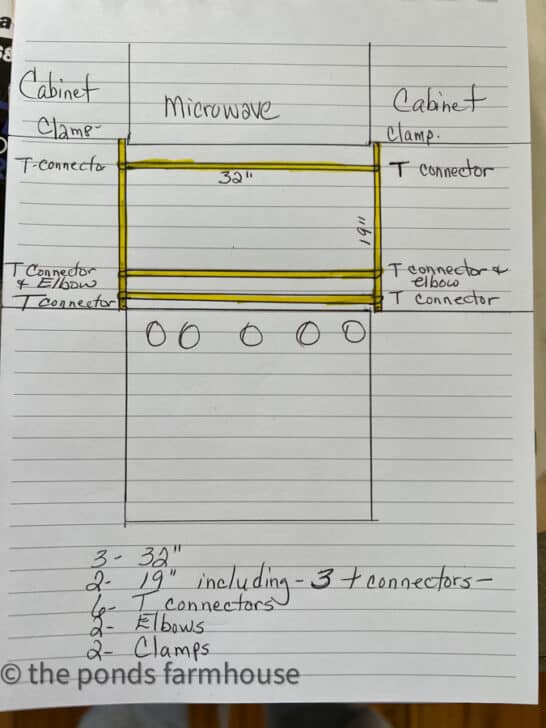 Cabinet
Microwave
Cabinet
Clamp-
Clamp.
T-connector
32"
T connector
19"
T Connector
& Elbow
T connector &
elbow
T Connector
T connector
3- 32"
2- 19" including - 3 t connectors -
6- T connectors
2- Elbows
2- Clamps
© the ponds farmhouse